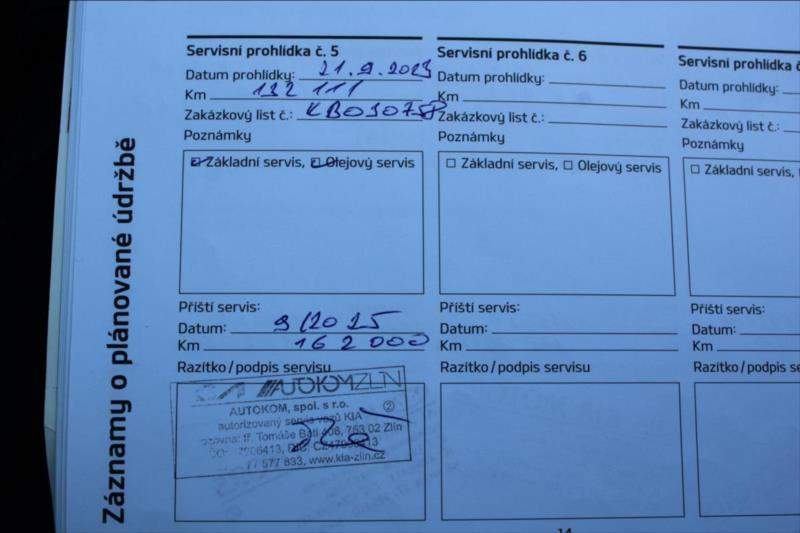 Záznamy o plánované údržbě
Servisní prohlídka č. 5
Datum prohlídky: 21.9.2023
Km 132 111
Zakázkový list č.: KB030758
Poznámky
Základní servis, Olejový servis
Příští servis:
Datum: 9/2025
Km 162 000
Razítko/podpis servisu
AUTOKOMZLÍN
AUTOKOM, spol. s r.o.
autorizovaný servis vozů KIA
tř. Tomáše Bati 408, 763 02 Zlín
577 833, www.kia-zlin.cz
Servisní prohlídka č. 6
Datum prohlídky:
Km
Zakázkový list č.:
Poznámky
Základní servis, Olejový servis
Příští servis:
Datum:
Km
Razítko/podpis servisu
Servisní prohlídka č
Datum prohlídky:
Km
Zakázkový list č.:
Poznámky
Základní servis,
Příští servis:
Datum:
Km
Razítko/podpis se
14